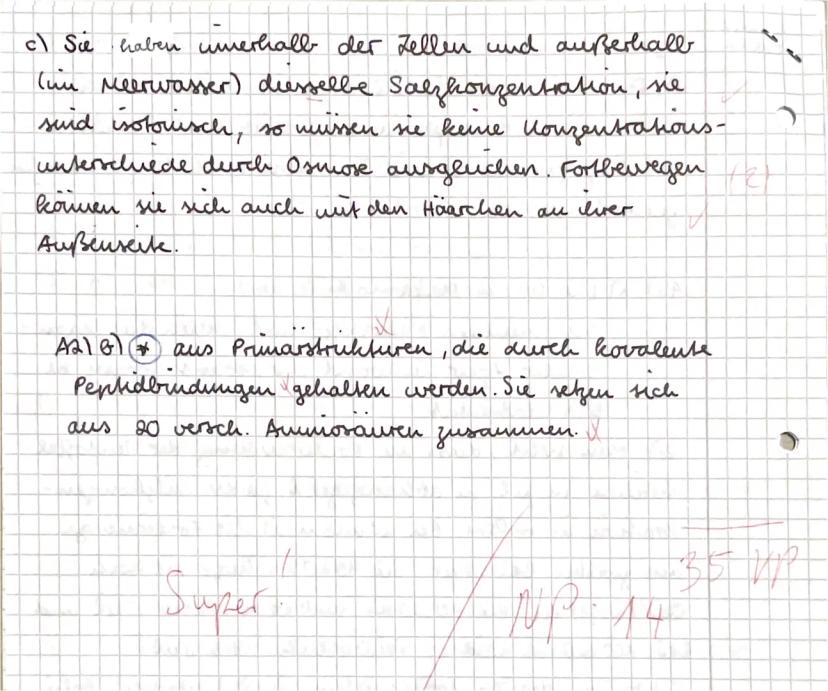 c) Sie haben innerhalb der Zellen und außerhalb
(im Meerwasser) diesselbe Salzkonzentration, sie
sind isotonisch, so müssen sie keine Konzentrations-
unterschiede durch Osmose ausgleichen. Fortbewegen
(2)
können sie sich auch mit den Häarchen an ihrer
Außenseite.
A2) b) * aus Primärstrukturen, die durch kovalente
Peptidbindungen gehalten werden. Sie setzen sich
aus 20 versch. Aminosäuren zusammen.
35 VP
Super!
NP: 14